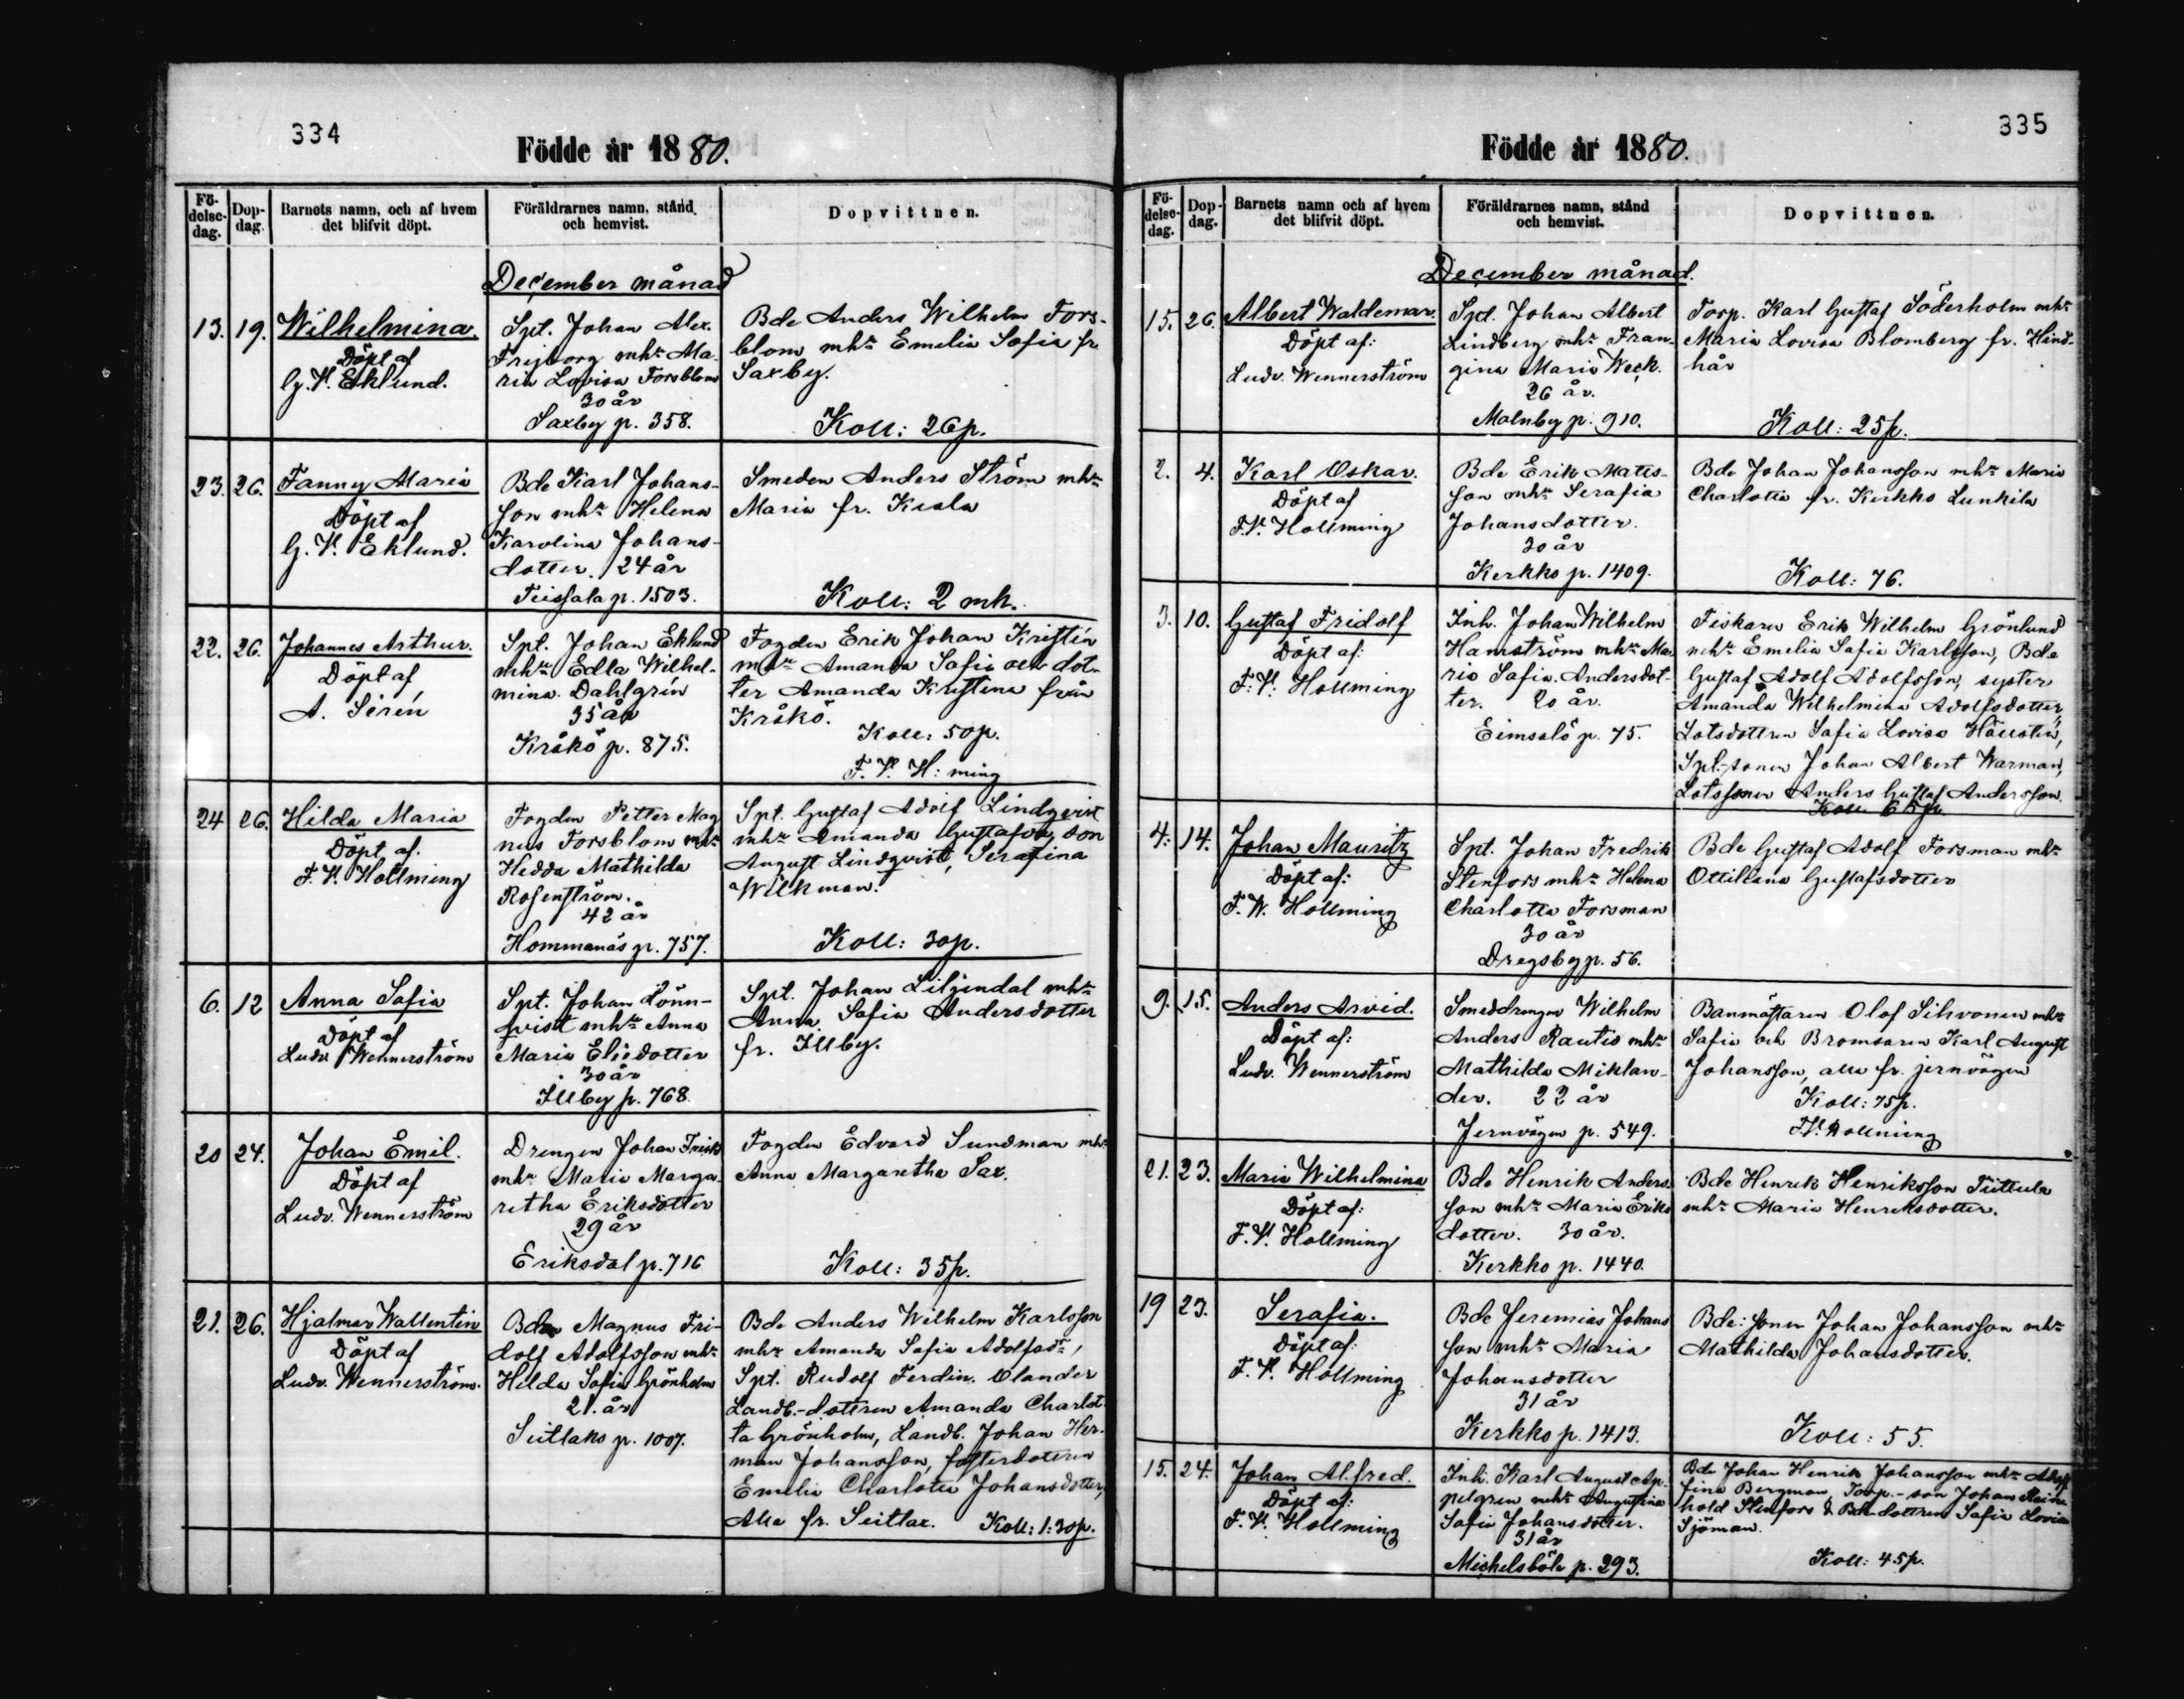 334
Födde år 1880.
Fö-
delse-
dag.
Dop-
dag.
Barnets namn, och af hvem
det blifvit döpt.
Föräldrarnes namn, stånd
och hemvist.
Dopvittnen.
December månad
13. 19.
Wilhelmina.
Döpt af
G. V. Eklund.
Spt. Johan Alex.
Frejborg mhr Ma-
ria Lovisa Forsblom
30 år
Saxby p. 358.
Bde Anders Wilhelm Fors-
blom mhr Emelia Sofia fr.
Saxby.
Koll: 26p.
23. 26.
Fanny Maria
Döpt af
G. V. Eklund.
Bde Karl Johans-
son mhr Helena
Karolina Johans-
dotter. 24 år
Teissala p. 1503.
Smeden Anders Ström mhr
Maria fr.
Koll: 2 mk.
22. 26.
Johannes Arthur.
Döpt af
A. Sirén
Spt. Johan Eklund
mhr Edla Wilhel-
mina Dahlgrén
35 år
Kråkö p. 875.
Fogden Erik Johan Kristín
mhr Amanda Sofia och dot-
ter Amanda Kristina från
Kråkö.
Koll: 50p.
F. V. H:ming
24 26.
Hilda Maria
Döpt af.
F. V. Hollming
Fogden Petter Mag
nus Forsblom mhr
Hedda Mathilda
Rosenström.
42 år
Hommanäs p. 757.
Spt. Gustaf Adolf Lindqvist
mhr Amanda son
August Lindqvist, Serafina
Wilkman.
Koll: 30p.
6. 12
Anna Sofia
Döpt af
Ludv. Wennerström
Spt. Johan Lönn-
qvist mhr Anna
Maria Eliedotter
30 år
Illby p. 768.
Spt. Johan Liljendal mhr
Anna Sofia Andersdotter
fr. Illby.
20 24.
Johan Emil.
Döpt af
Ludv. Wennerström
Drengen Johan
mhr Maria Marga-
retha Eriksdotter
29 år
Eriksdal p. 716
Fogden Edvard Sundman mhr
Anna Margaretha Sax.
Koll: 35p.
21. 26.
Hjalmar Wallentin
Döpt af
Ludv. Wennerström.
Bde Magnus Fri-
dolf Adolfsson mhr
Hilda Sofia Grönholm
21. år
Seitlaks p. 1007.
Bde Anders Wilhelm Karlsson
mhr Amanda Sofia Adolfsdr,
Spt. Rudolf Ferdin. Olander
Landb.-dottren Amanda Charlot-
ta Grönholm, Landb. Johan Her-
man Johansson, fosterdottren
Emelia Charlotta Johansdotter,
Alla fr. Seitlax. Koll: 1:30p.
335
Födde år 1880.
Fö-
delse-
dag.
Dop-
dag.
Barnets namn och af hvem
det blifvit döpt.
Föräldrarnes namn, stånd
och hemvist.
Dopvittnen.
December månad.
15. 26.
Albert Waldemar.
Döpt af:
Ludv. Wennerström
Spt. Johan Albert
Lindberg mhr Fran-
gina Maria Weck.
26 år.
Malmby p. 910.
Torp. Karl Gustaf Söderholm mhr
Maria Lovisa Blomberg fr. Hind-
hår
Koll: 25p.
2. 4.
Karl Oskar.
Döpt af
F. V. Hollming
Bde Erik Mats-
son mhr Serafia
Johansdotter.
30 år
Kerkko p. 1409.
Bde Johan Johansson mhr Maria
Charlotta fr. Kerkko Lunkila
Koll: 76.
3. 10.
Gustaf Fridolf
Döpt af:
F. V. Hollming
Inh. Johan Wilhelm
Hamström mhr Ma-
ria Sofia Andersdot-
ter. 20 år.
Eimsalö p. 75.
Fiskaren Erik Wilhelm Grönlund
mhr Emelia Sofia Karlsson, Bde
Gustaf Adolf Adolfsson, syster
Amanda Wilhelmina Adolfsdotter,
Lotsdottren Sofia Lovisa Hällstén,
Spt.-sonen Johan Albert Warman,
Lotssonen Anders Gustaf Andersson.
Koll: 65p.
4. 14.
Johan Mauritz
Döpt af:
F. W. Hollming
Spt. Johan Fredrik
Stenfors mhr Helena
Charlotta Forsman
30 år
Dregsby p. 56.
Bde Gustaf Adolf Forsman mhr
Ottiliana Gustafsdotter
9. 15.
Anders Arvid.
Döpt af:
Ludv. Wennerström
Smeddrengen Wilhelm
Anders Rautio mhr
Mathilda Miklan-
der. 22 år
Jernvägen p. 549.
Banmästaren Olof Sihvonen mhr
Sofia och Bromsaren Karl August
Johansson, alla fr. jernvägen
Koll: 75p.
F. V. Hollming
21. 23.
Maria Wilhelmina
Döpt af:
F. V. Hollming
Bde Henrik Anders-
son mhr Maria Eriks
dotter. 30 år.
Kerkko p. 1440.
Bde Henrik Henriksson Tiittula
mhr Maria Henriksdotter.
19 23.
Serafia.
Döpt af:
F. V. Hollming
Bde Jeremias Johans
son mhr Maria
Johansdotter
31 år
Kerkko p. 1413.
Bde: sonen Johan Johansson mhr
Mathilda Johansdotter.
Koll: 55.
15. 24.
Johan Alfred.
Döpt af:
F. V. Hollming
Inh. Karl August Ap-
pelgren mhr Augustina
Sofia Johansdotter.
31 år
Michelsböle p. 293.
Bde Johan Henrik Johansson mhr
fina Bergman, Torp.-son Johan Rein-
hold Stenfors & Bde dottren Sofia Lovisa
Sjöman.
Koll: 45p.